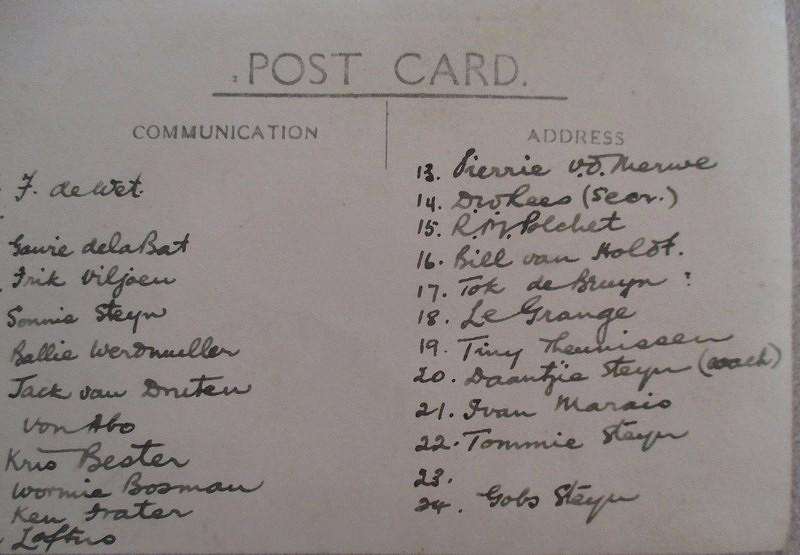 POST CARD.
COMMUNICATION
F. de Wet.
Gawie de la Bat
Frik Viljoen
Sonnie Steyn
Ballie Werdmuller
Jack van Druten
von Abo
Kris Bester
Wormie Bosman
Ken Frater
Loftus
ADDRESS
13. Pierrie v.d. Merwe
14. (Secr.)
15. R.M. Polchet
16. Bill van Holdt.
17. Tok de Bruyn ?
18. Le Grange
19. Tiny Theunissen
20. Daantjie Steyn (coach)
21. Ivan Marais
22. Tommie Steyn
23.
24. Gobs Steyn